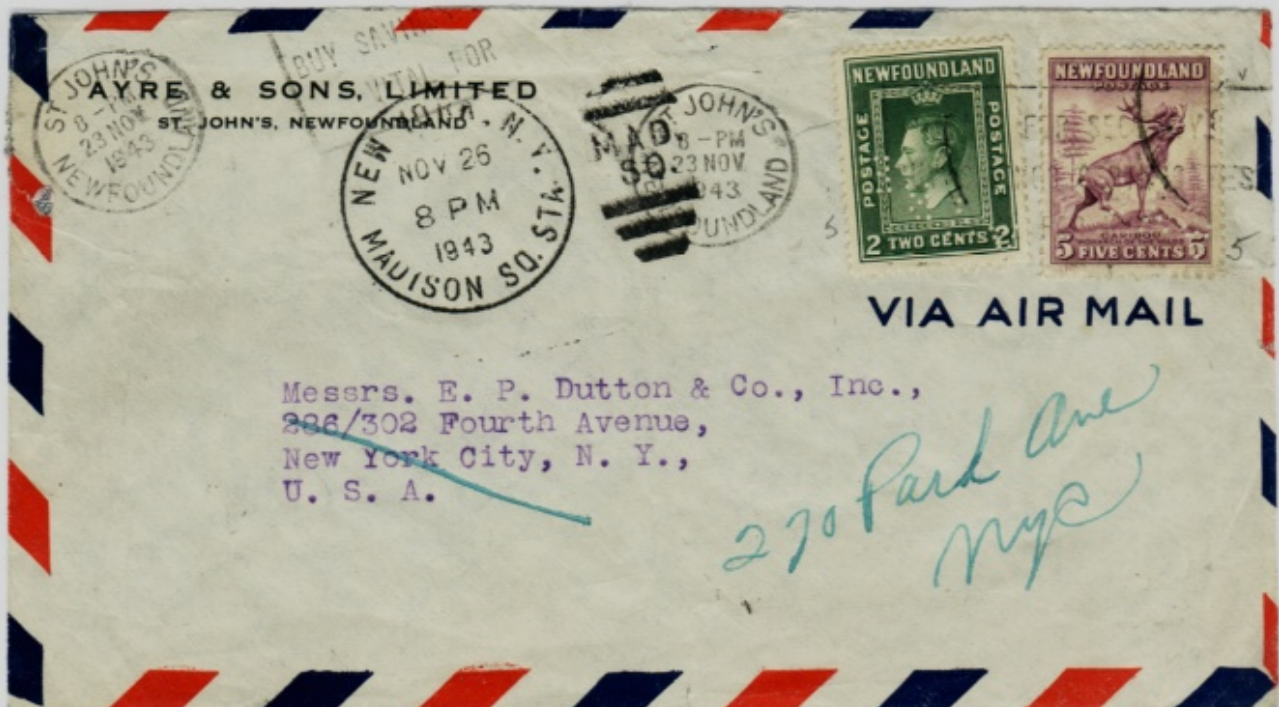 BUY SAVIN
VITAL FOR
AYRE & SONS, LIMITED
ST. JOHN'S, NEWFOUNDLAND
ST JOHN'S
8-PM
23 NOV
1943
NEWFOUNDLAND
NEW YORK, N.Y.
NOV 26
8 PM
1943
MADISON SQ. STA.
MAD.
SQ.
ST JOHN'S
8-PM
23 NOV
1943
FOUNDLAND
NEWFOUNDLAND
POSTAGE
POSTAGE
2 TWO CENTS 2
NEWFOUNDLAND
POSTAGE
CARIBOU
5 FIVE CENTS 5
5
VIA AIR MAIL
Messrs. E. P. Dutton & Co., Inc.,
286/302 Fourth Avenue,
New York City, N. Y.,
U. S. A.
270 Park Ave
NYC